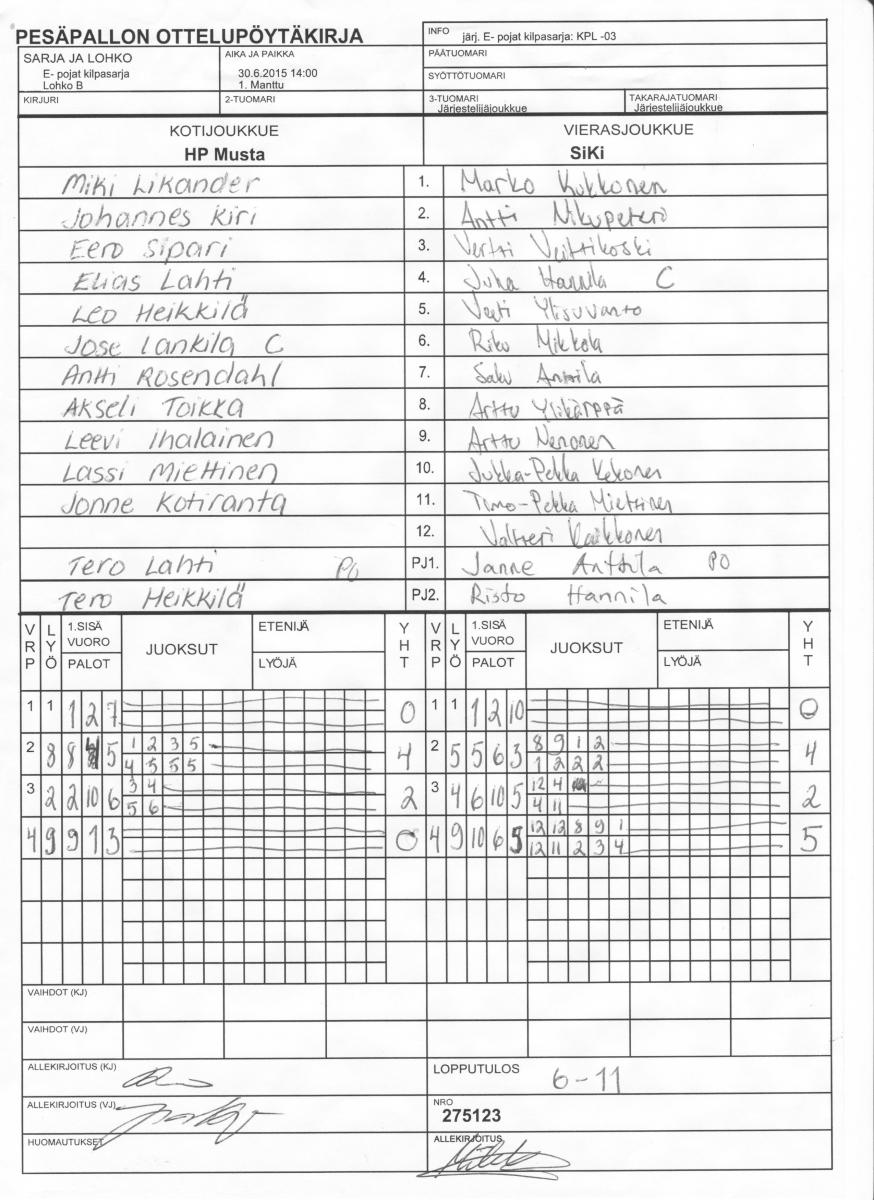 PESÄPALLON OTTELUPÖYTÄKIRJA
INFO järj. E- pojat kilpasarja: KPL -03
PÄÄTUOMARI
SYÖTTÖTUOMARI
SARJA JA LOHKO
E- pojat kilpasarja
Lohko B
AIKA JA PAIKKA
30.6.2015 14:00
1. Manttu
KIRJURI
2-TUOMARI
3-TUOMARI
Järjestelijäjoukkue
TAKARAJATUOMARI
Järjestelijäjoukkue
KOTIJOUKKUE VIERASJOUKKUE
HP Musta SiKi
Miki Likander 1. Marko Kukkonen
Johannes Kiri 2. Antti Nikupeteri
Eero Sipari 3. Vertti Veittikoski
Elias Lahti 4. Juha Hannila C
Leo Heikkilä 5. Veeti Ylisuvanto
Jose Lankila C 6. Riku Mikkola
Antti Rosendahl 7. Saku Anttila
Akseli Toikka 8. Arttu Ylikärppä
Leevi Ihalainen 9. Arttu Nenonen
Lassi Miettinen 10. Jukka-Pekka Kekonen
Jonne Kotiranta 11. Timo-Pekka Miettinen
12. Valtteri Kaikkonen
Tero Lahti PO PJ1. Janne Anttila PO
Tero Heikkilä PJ2. Risto Hannila
VRP LYÖ 1.SISÄ VUORO PALOT JUOKSUT ETENIJÄ LYÖJÄ YHT VRP LYÖ 1.SISÄ VUORO PALOT JUOKSUT ETENIJÄ LYÖJÄ YHT
1 1 1 2 7 0 1 1 1 2 10 0
2 8 8 5 1 2 3 5 4 2 5 5 6 3 8 9 1 2 4
4 5 5 5 1 2 2 2
3 2 2 10 6 3 4 2 3 4 6 10 5 12 4 2
5 6 4 11
4 9 9 1 3 0 4 9 10 6 5 12 12 8 9 1 5
12 11 2 3 4
VAIHDOT (KJ)
VAIHDOT (VJ)
ALLEKIRJOITUS (KJ)
LOPPUTULOS 6-11
ALLEKIRJOITUS (VJ)
NRO
275123
HUOMAUTUKSET
ALLEKIRJOITUS